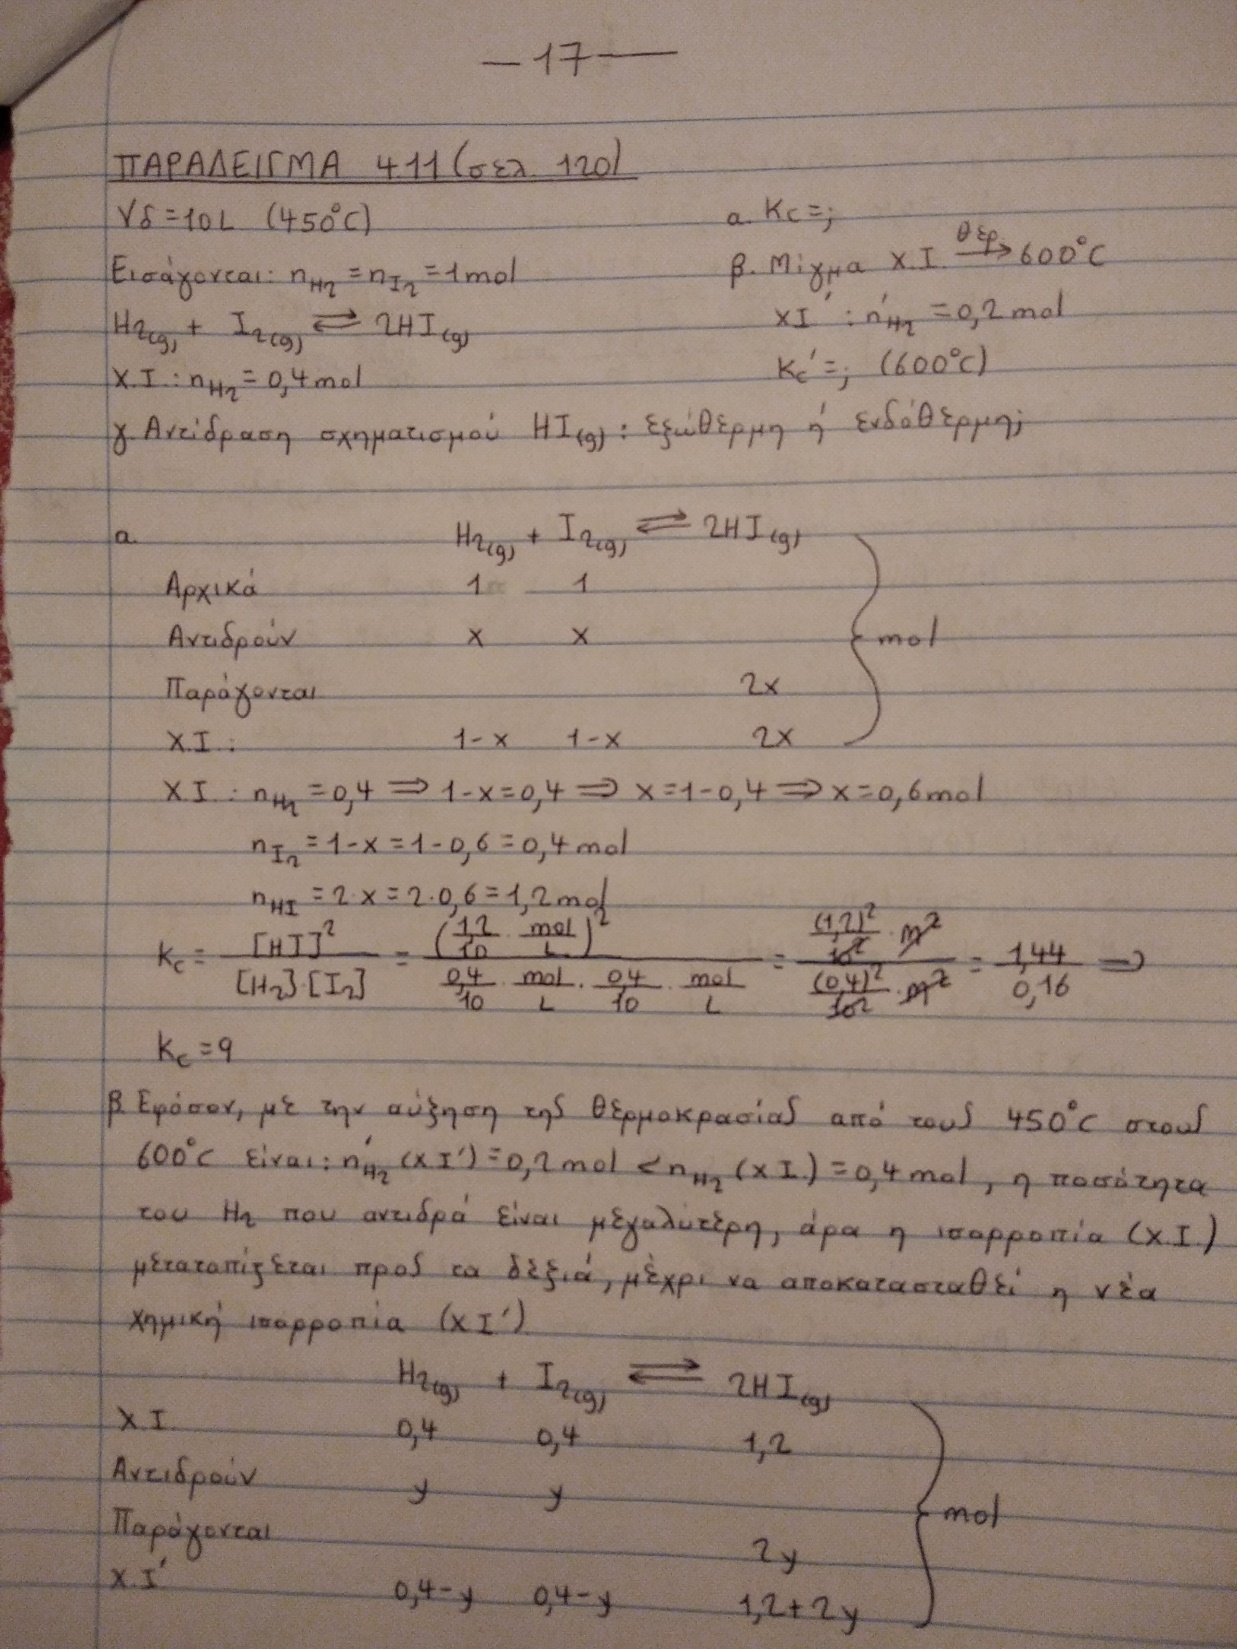 —17—
ΠΑΡΑΔΕΙΓΜΑ 4.11 (σελ. 120)
Vδ = 10L (450°C)
α. Kc = ;
Εισάγονται: nH₂ = nI₂ = 1 mol
β. Μίγμα Χ.Ι. —θερ.→ 600°C
H₂(g) + I₂(g) ⇄ 2HI(g)
ΧΙ′ : n′H₂ = 0,2 mol
Χ.Ι.: nH₂ = 0,4 mol
Kc′ = ; (600°C)
γ. Αντίδραση σχηματισμού HI(g) : εξώθερμη ή ενδόθερμη;
α. H₂(g) + I₂(g) ⇄ 2HI(g)
Αρχικά 1 1
Αντιδρούν x x } mol
Παράγονται 2x
Χ.Ι.: 1-x 1-x 2x
Χ.Ι.: nH₂ = 0,4 ⇒ 1-x = 0,4 ⇒ x = 1-0,4 ⇒ x = 0,6 mol
nI₂ = 1-x = 1-0,6 = 0,4 mol
nHI = 2·x = 2·0,6 = 1,2 mol
Kc = [HI]² / [H₂]·[I₂] = (1,2/10 · mol/L)² / 0,4/10 · mol/L · 0,4/10 · mol/L = (1,2)²/10² · M² / (0,4)²/10² · M² = 1,44/0,16 ⇒
Kc = 9
β. Εφόσον, με την αύξηση της θερμοκρασίας από τους 450°C στους
600°C είναι: n′H₂ (ΧΙ′) = 0,2 mol < nH₂ (ΧΙ.) = 0,4 mol, η ποσότητα
του H₂ που αντιδρά είναι μεγαλύτερη, άρα η ισορροπία (Χ.Ι.)
μετατοπίζεται προς τα δεξιά, μέχρι να αποκατασταθεί η νέα
χημική ισορροπία (ΧΙ′)
H₂(g) + I₂(g) ⇄ 2HI(g)
Χ.Ι. 0,4 0,4 1,2
Αντιδρούν y y } mol
Παράγονται 2y
Χ.Ι′ 0,4-y 0,4-y 1,2+2y